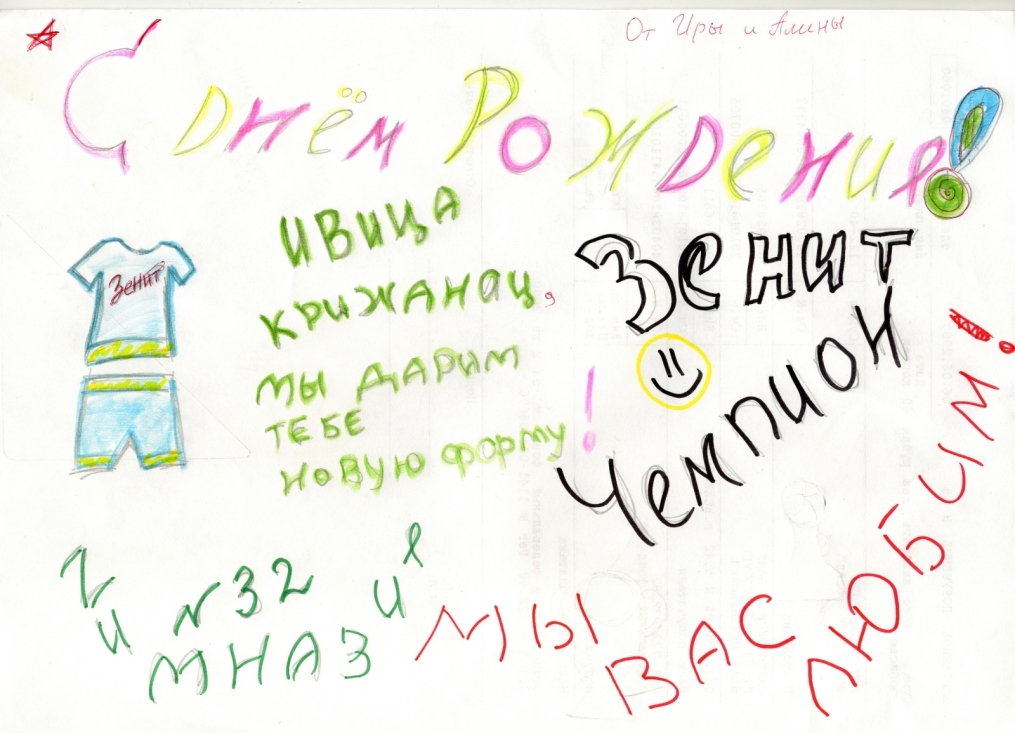 От Иры и Алины
С днём Рождения!
Зенит
ИВИЦА
КРИЖАНАЦ,
МЫ ДАРИМ
ТЕБЕ
НОВУЮ форму!
Зенит
Чемпион
Гимназия
N32
МЫ ВАС ЛЮБИМ!